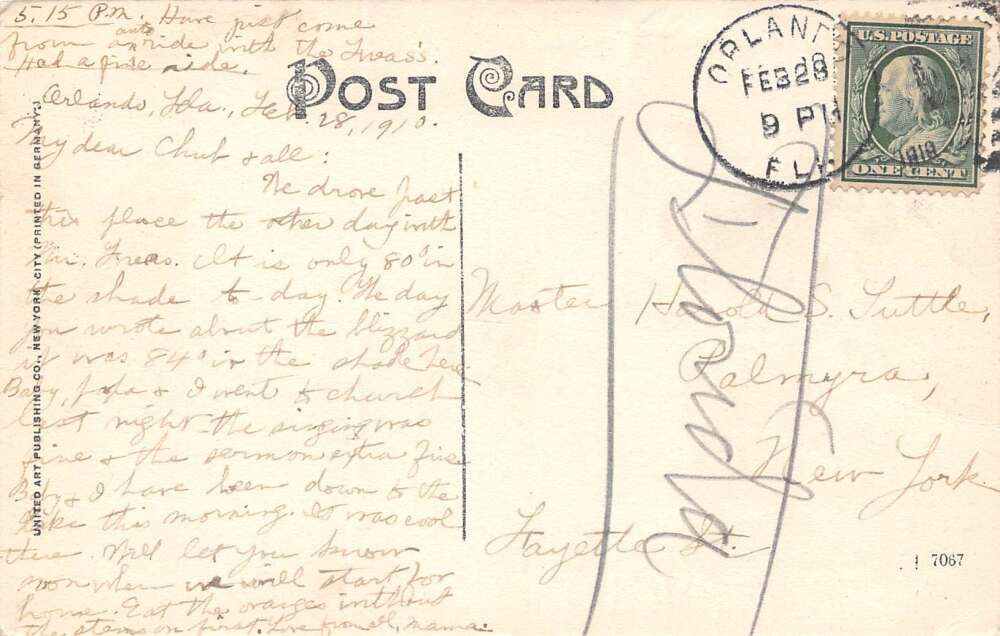 5.15 P.M. Have just come
from an auto ride with the Treas's.
Had a fine ride.
POST CARD
Orlando, Fla., Feb. 28, 1910.
My dear Chub & all:
We drove past
this place the other day with
Mr. Treas. It is only 80° in
the shade to-day. The day
you wrote about the blizzard
it was 84° in the shade here.
Baby, papa & I went to church
last night. The singing was
fine & the sermon extra fine
Baby & I have been down to the
lake this morning. It was cool
there. Will let you know
when we will start for
home. Eat the oranges without
the stems on first. Love from all, mama.
UNITED ART PUBLISHING CO., NEW YORK CITY (PRINTED IN GERMANY.)
ORLANDO
FEB 28
9 PM
FLA.
1910
U.S. POSTAGE
ONE CENT
Master Harold S. Tuttle,
Palmyra,
New York
Fayette St.
Florida
7067